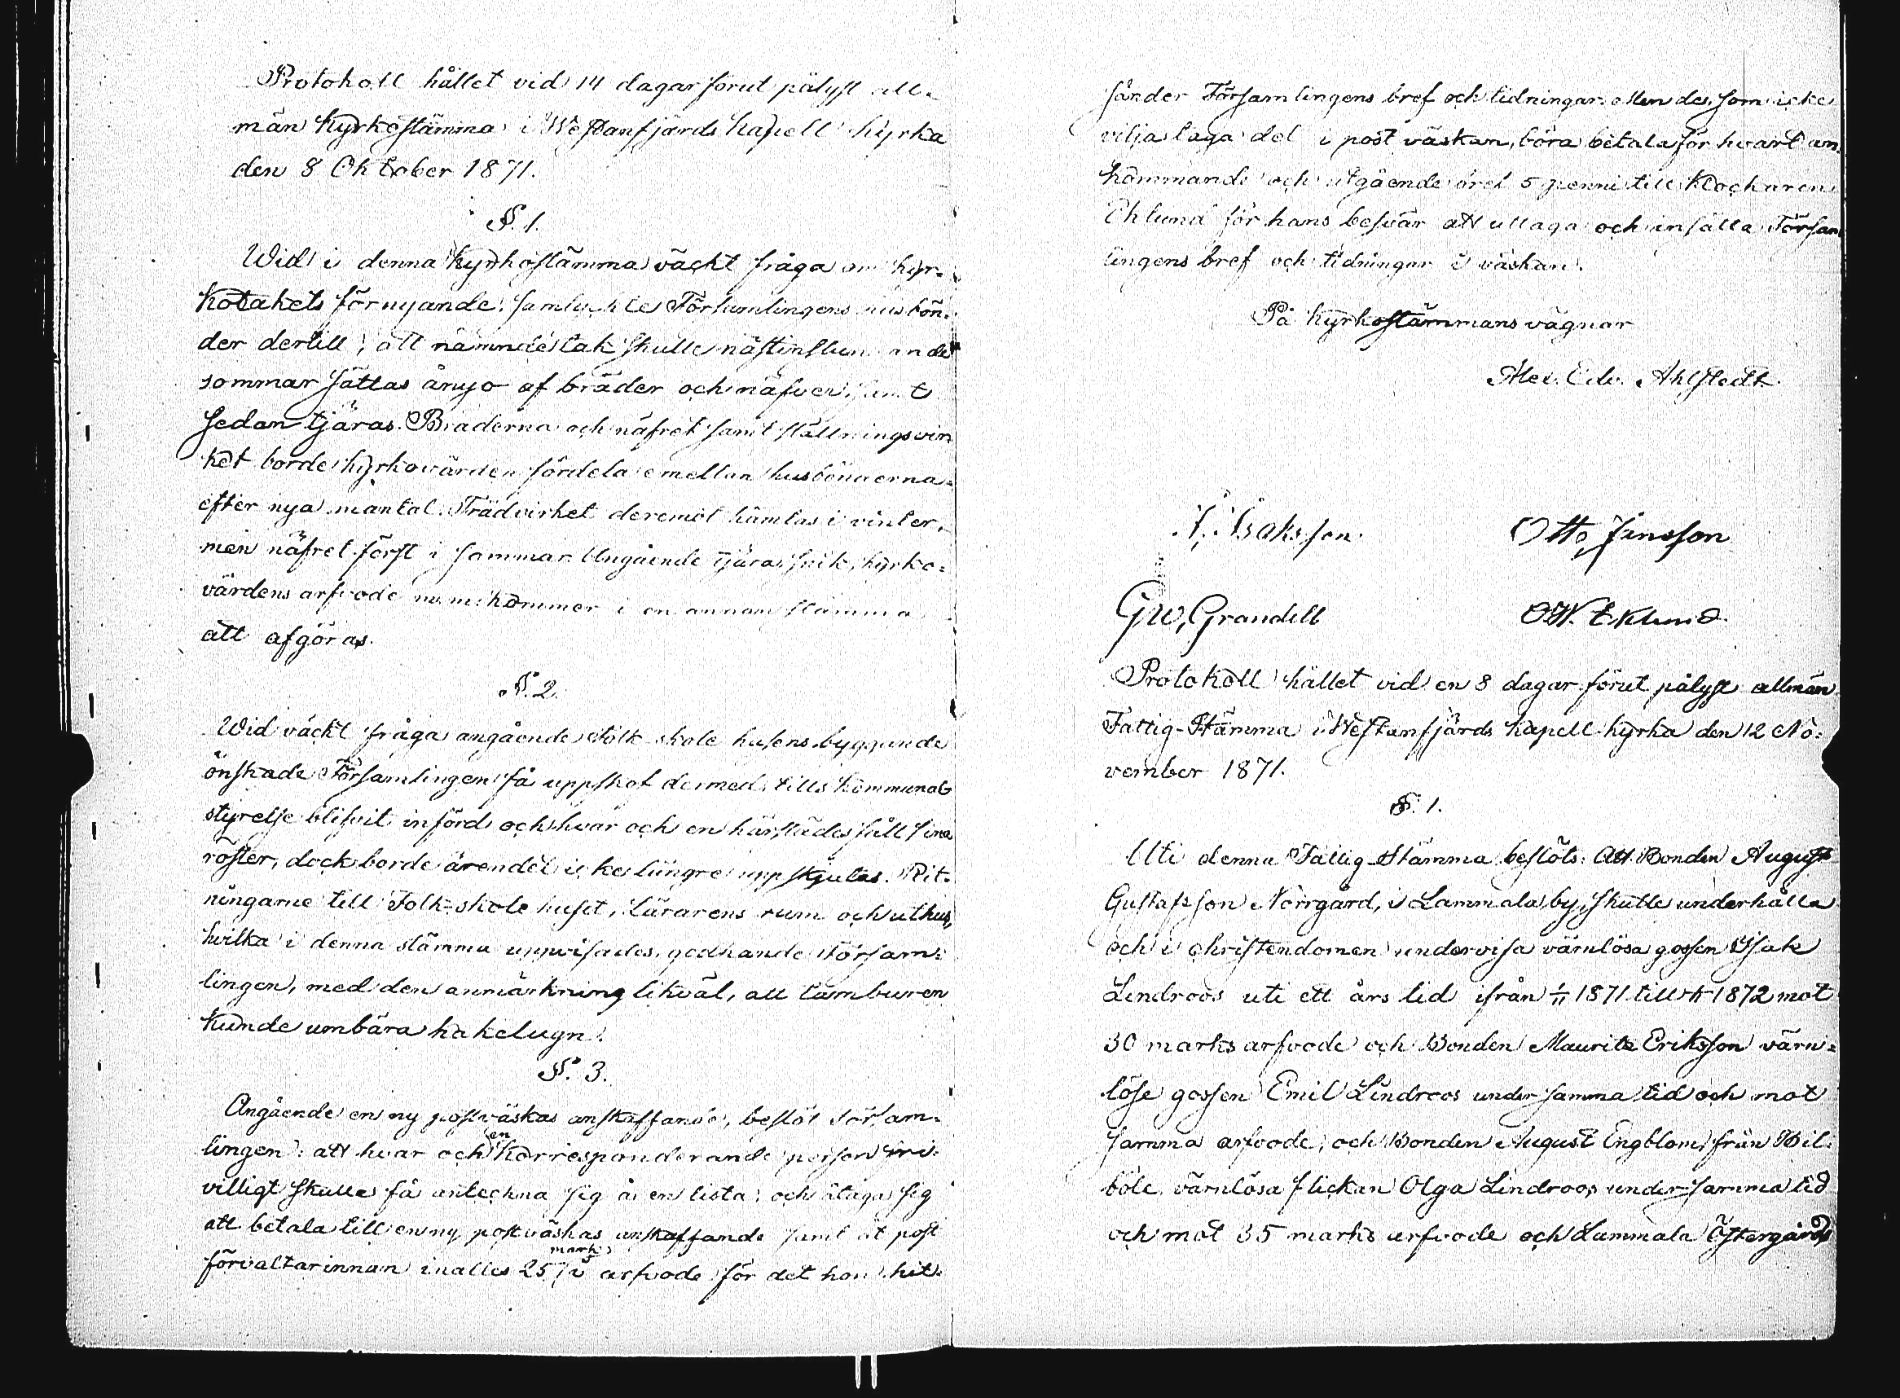 Protokoll hållet vid 14 dagar förut pålyst all-
män Kyrkostämma i Westanfjärds Kapell kyrka
den 8 Oktober 1871.
§. 1.
Wid i denna Kyrkostämma väckt fråga om kyr-
kotakets förnyande, samtyckte Församlingens husbön-
der dertill, att nämnde tak skulle nästinstundande
sommar sättas ånyo af bräder och näfver, samt
sedan tjäras. Bräderna och näfret samt ställningsvir-
ket borde kyrkovärden fördela emellan husbönderna
efter nya mantal. Trädvirket deremot hämtas i vinter,
men näfret först i sommar. Angående tjäras, spik, kyrko-
värdens arfvode m.m. kommer i en annan stämma
att afgöras.
§. 2.
Wid väckt fråga angående Folk skole husens byggande
önskade Församlingen få uppskof dermed, tills Kommunal
styrelse blifvit införd och hvar och en härstädes fått sina
röster, dock borde ärendet icke längre uppskjutas. Rit-
ningarne till Folk-skole huset, lärarens rum och uthus,
hvilka i denna stämma uppvisades, godkände Försam-
lingen, med den anmärkning likväl, att tamburen
kunde umbära kakelugn.
§. 3.
Angående en ny postväskas anskaffande, beslöt Försam-
lingen: att hvar och en Korresponderande person fri-
villigt skulle få anteckna sig å en lista, och åtaga sig
att betala till en ny postväskas anskaffande samt åt post
förvaltarinnan inalles 25 mark i arfvode för det hon hit-
sänder Församlingens bref och tidningar. Men de, som icke
vilja taga del i post väskan, böra betala för hvart an-
kommande och utgående bref 5 penni till Klockaren
Eklund för hans besvär att uttaga och insätta Försam-
lingens bref och tidningar i väskan.
På Kyrkostämmans vägnar
Alex. Edv. Ahlstedt.
I. Isaksson. Otto Jinsson
Gw. Grandell OW. Eklund.
Protokoll hållet vid en 8 dagar förut pålyst allmän
Fattig-Stämma i Westanfjärds Kapell kyrka den 12 No-
vember 1871.
§. 1.
Uti denna Fattig-Stämma beslöts: Att Bonden August
Gustafsson Norrgård, i Lammala by, skulle underhålla
och i christendomen undervisa värnlösa gossen Isak
Lindroos uti ett års tid ifrån 1/11 1871 till 1/11 1872 mot
30 marks arfvode och Bonden Maurits Eriksson värn-
löse gossen Emil Lindroos under samma tid och mot
samma arfvode, och Bonden August Engblom från Bil-
böle värnlösa flickan Olga Lindroos under samma tid
och mot 35 marks arfvode och Lammala Östergårds